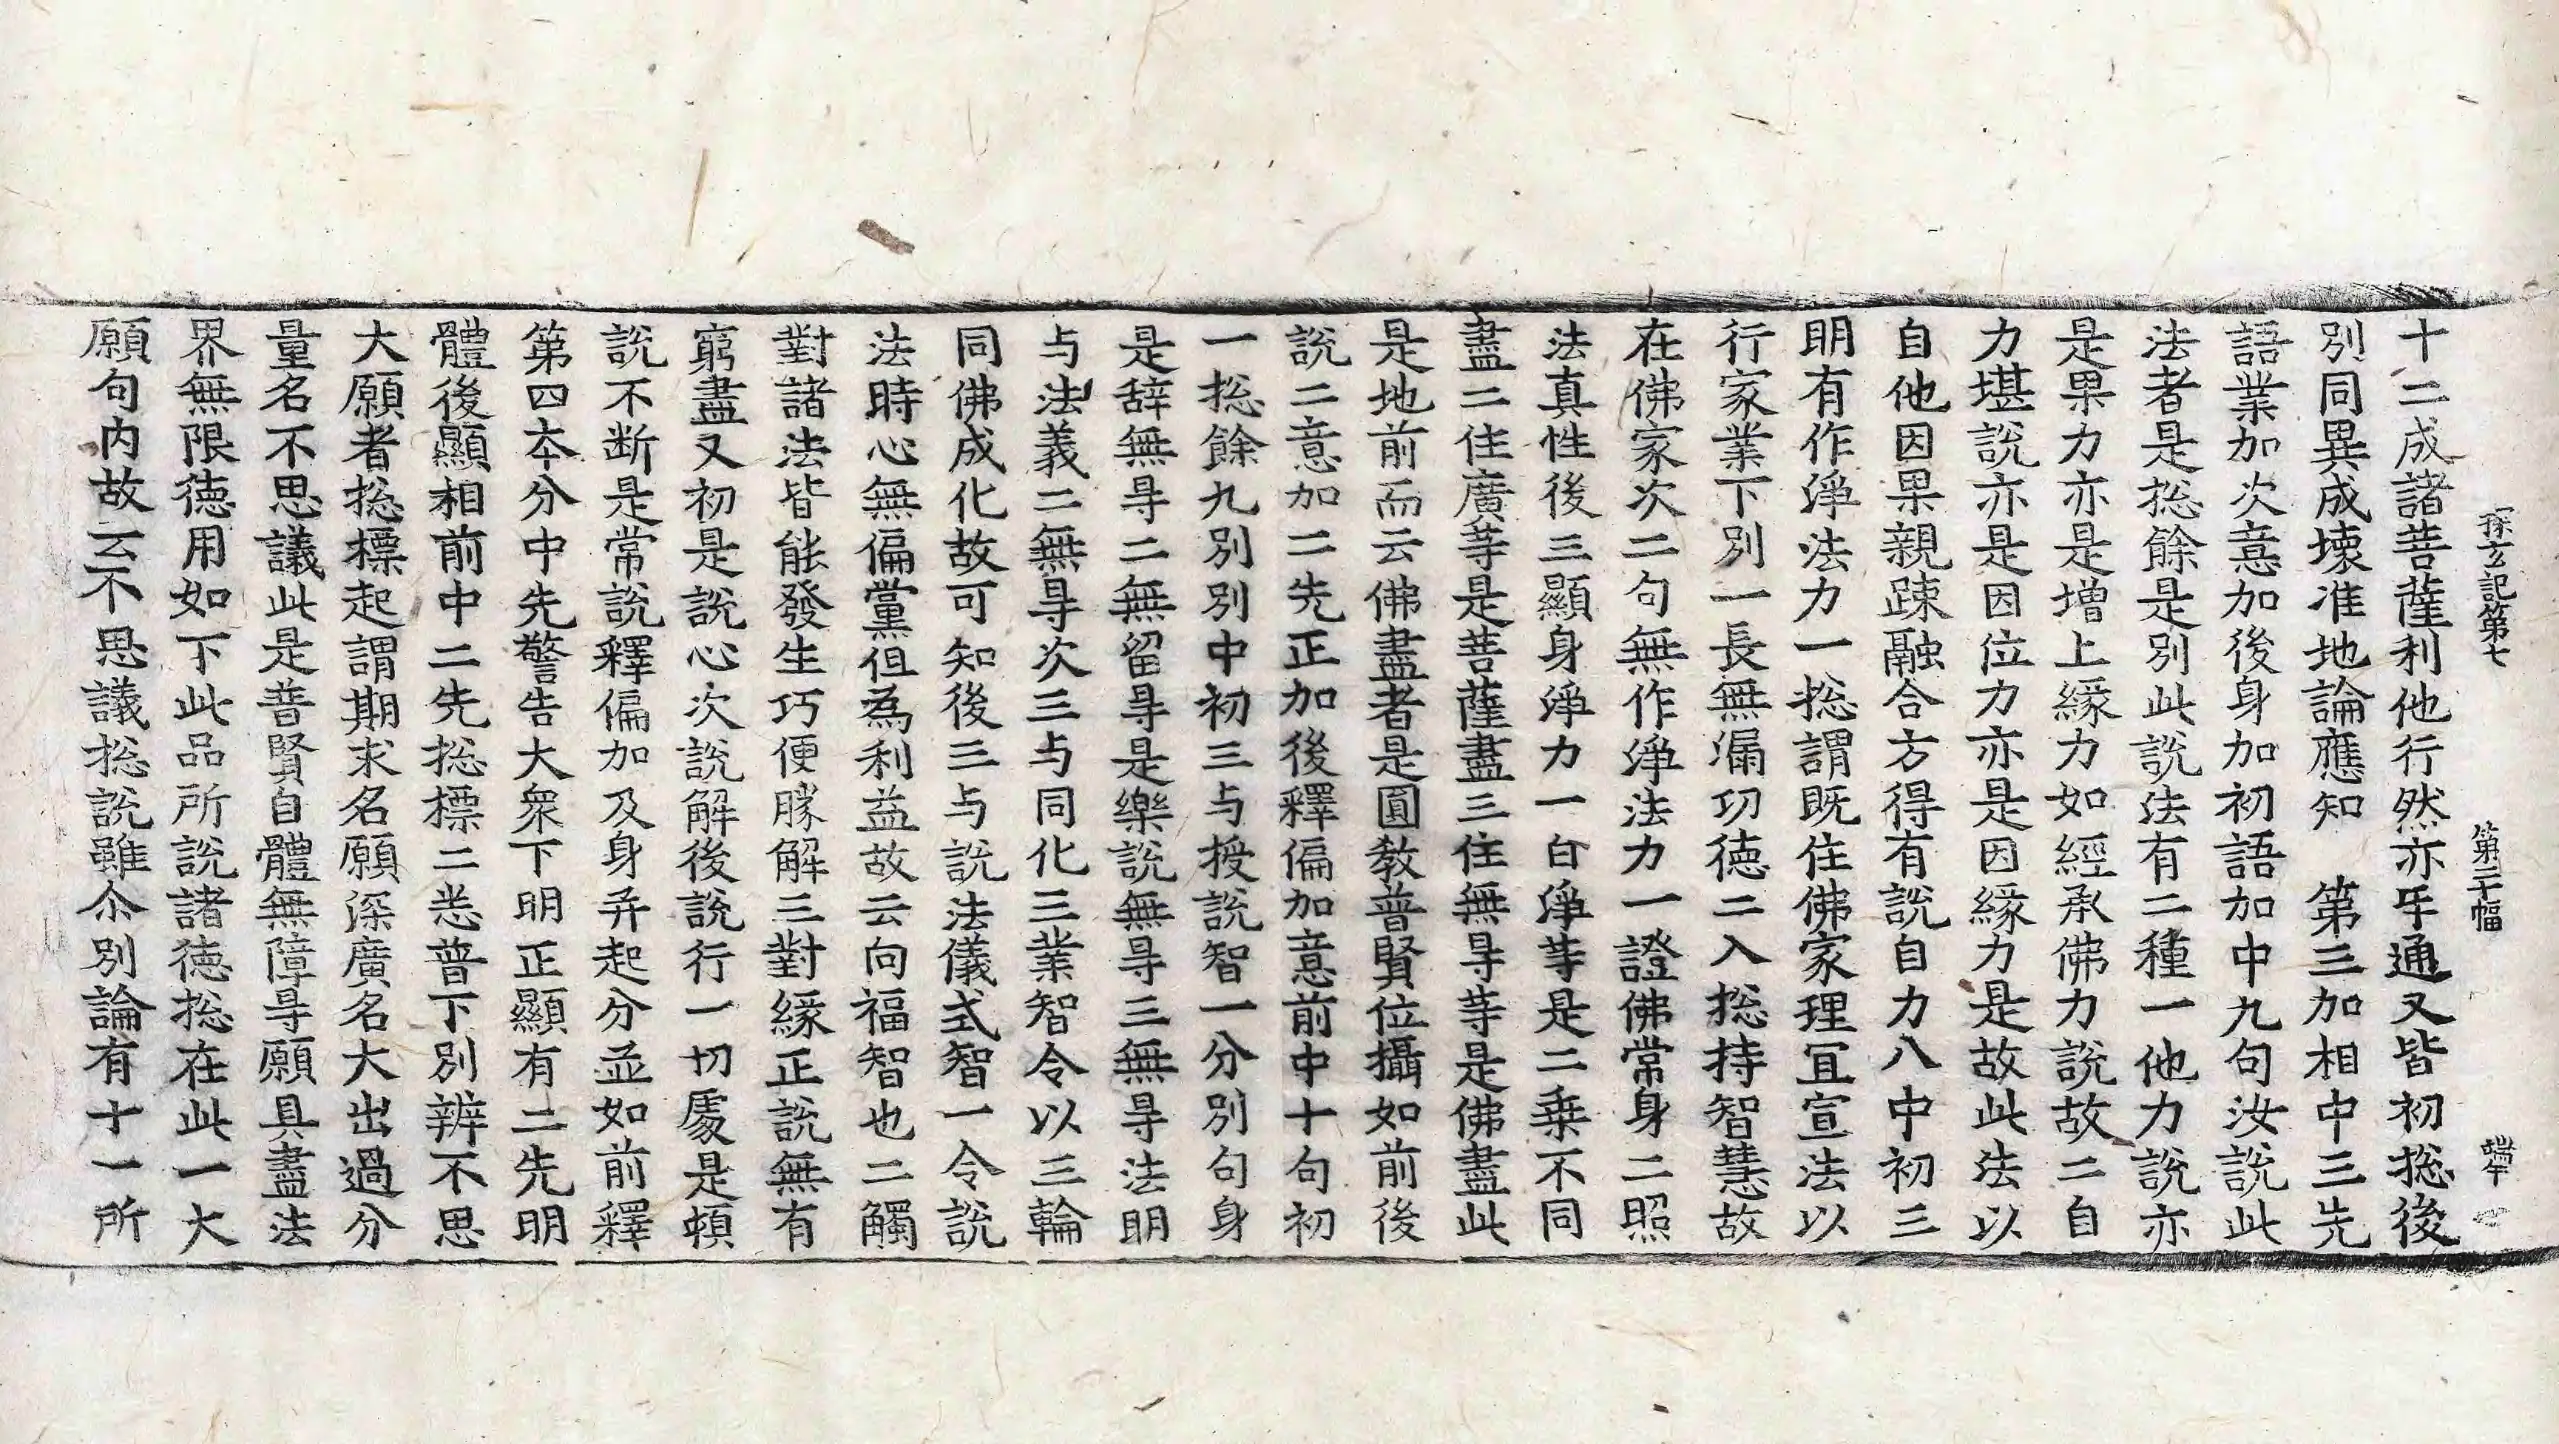 探玄記第七 第二十幅 端午
十二成諸菩薩利他行然亦㸦通又皆初捴後
別同異成壞准地論應知 第三加相中三先
語業加次意加後身加初語加中九句汝說此
法者是捴餘是別此說法有二種一他力說亦
是果力亦是增上緣力如經承佛力說故二自
力堪說亦是因位力亦是因緣力是故此法以
自他因果親踈融合方得有說自力八中初三
明有作淨法力一捴謂既住佛家理冝宣法以
行家業下別一長無漏功德二入捴持智慧故
在佛家次二句無作淨法力一證佛常身二照
法真性後三顯身淨力一白淨䓁是二乗不同
盡二住廣䓁是菩薩盡三住無㝵䓁是佛盡此
是地前而云佛盡者是圓教普賢位攝如前後
說二意加二先正加後釋偏加意前中十句初
一捴餘九別別中初三与授說智一分別句身
是辞無㝵二無留㝵是樂說無㝵三無㝵法明
与法義二無㝵次三与同化三業智令以三輪
同佛成化故可知後三与說法儀式智一令說
法時心無偏黨但為利益故云向福智也二觸
對諸法皆能發生巧便勝解三對緣正說無有
窮盡又初是說心次說解後說行一切處是頓
說不断是常說釋偏加及身并起分並如前釋
第四夲分中先警告大衆下明正顯有二先明
體後顯相前中二先捴標二悉普下別辨不思
大願者捴標起謂期求名願深廣名大出過分
量名不思議此是普賢自體無障㝵願具盡法
界無限德用如下此品所說諸德捴在此一大
願句內故云不思議捴說雖尒別論有十一所